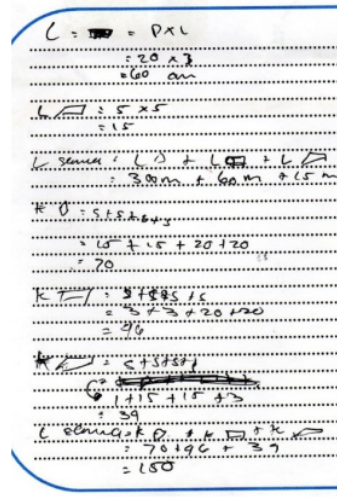 L = = P x L
= 20 x 3
= 60 cm
L ▱ = 5 x 5
= 15
L semua = L + L ▭ + L ▱
= 300m + 60m + 15 m
K = s+s+s+s
= 15 + 15 + 20 + 20
= 70
K = s+s+s+s
= 3 + 3 + 20 + 20
= 46
K ▱ = s+s+s+s
1+15 + 15 + 3
= 39
= 70+96 + 39
= 150